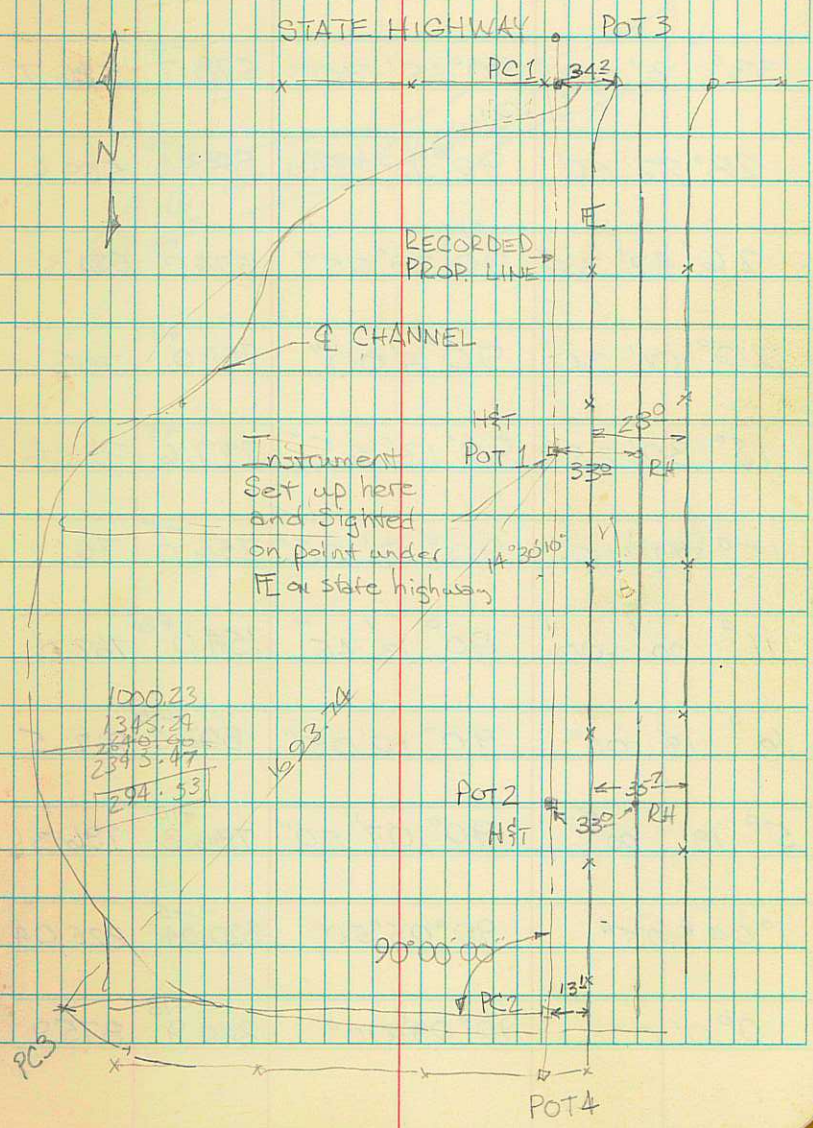 STATE HIGHWAY
POT 3
PC1
34²
N
FE
RECORDED
PROP. LINE
℄ CHANNEL
H&T
POT 1
28⁰
33⁰
RH
Instrument
Set up here
and Sighted
on point under
FE on state highway
14°30'10"
1000.23
2343.47
294.53
1693.74
POT2
H&T
35⁷
33⁰
RH
90°00'00"
PC2
13¹
PC3
POT4